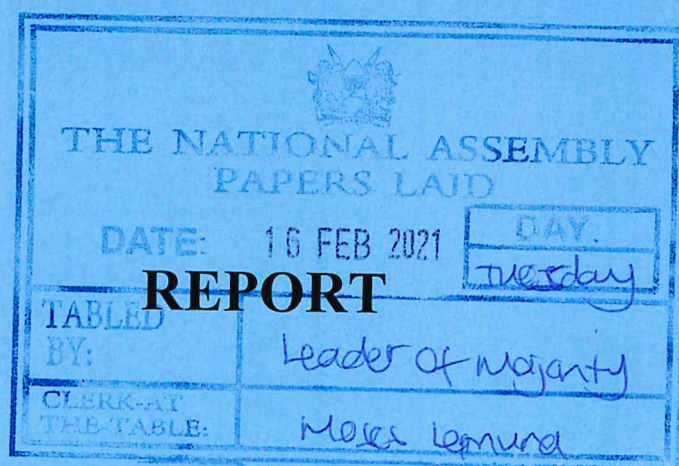 THE NATIONAL ASSEMBLY
PAPERS LAID
DATE: 16 FEB 2021 DAY.
Tuesday
REPORT
TABLED BY: Leader of Majority
CLERK-AT THE-TABLE: Moses